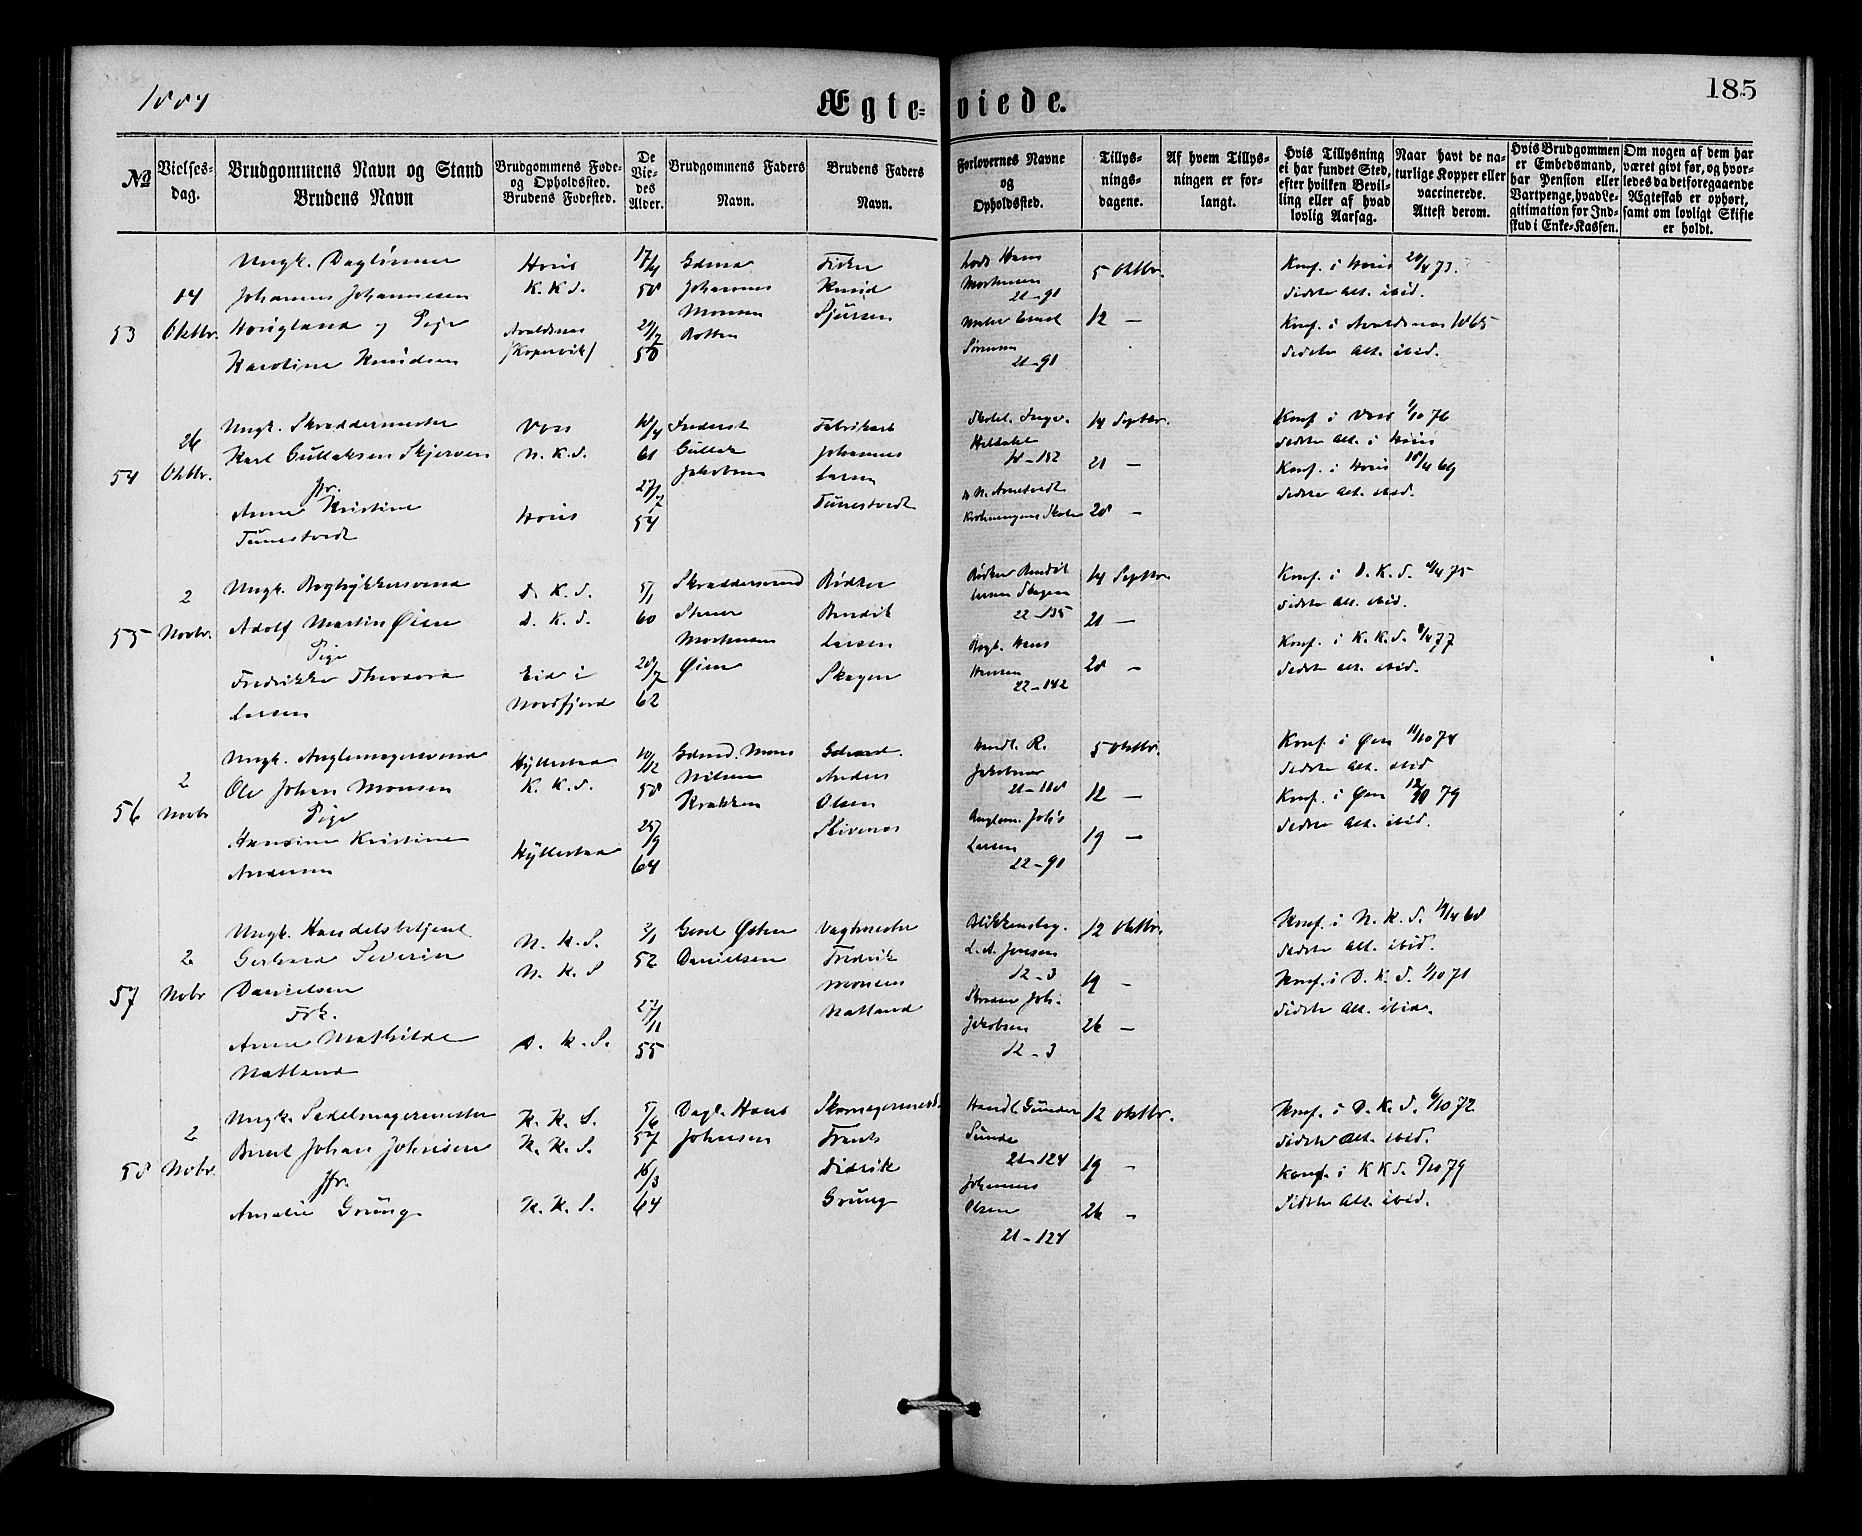 1884
Ægte-viede.
185
№
Vielses-
dag.
Brudgommens Navn og Stand
Brudens Navn
Brudgommens Føde-
og Opholdssted.
Brudens Fødested.
De
Vie-
des
Alder.
Brudgommens Faders
Navn.
Brudens Faders
Navn.
Forlovernes Navne
og
Opholdssted.
Tillys-
nings-
dagene.
Af hvem Tillys-
ningen er for-
langt.
Hvis Tillysning
ei har fundet Sted,
efter hvilken Bevil-
ling eller af hvad
lovlig Aarsag.
Naar havt de na-
turlige Kopper eller
vaccinerede.
Attest derom.
Hvis Brudgommen
er Embedsmand,
har Pension eller
Vartpenge, hvad Le-
gitimation for Ind-
skud i Enke-Kassen.
Om nogen af dem har
været givt før, og hvor-
ledes da det foregaaende
Ægteskab er ophørt,
samt om lovligt Skifte
er holdt.
53
14
Oktbr.
Ungk.
Johannes Johannesen
Hougland og Pige
Karoline Knudsen
K. K. S.
Avaldsnes
/Kopervik/
17/4
58
29/7
50
Gdmd
Johannes
Monsen
Fisker
Knud
Sjursen
Lods Hans
Mortensen
21-91
Sørensen
21-91
5 Oktbr.
12 —
Sidste Alt. ibid.
Konf. i Avaldsnes 1865
Sidste Alt. ibid.
54
26
Oktbr.
Ungk. Skræddermester
Karl Gullaksen Skjerven
Jfr.
Anna Kristine
Tunestvedt
Voss
N. K. S.
61
27/2
54
Gullak
Jakobsen
Fabrikarb
Johannes
Larsen
Tunestvedt
14 Septbr.
21 —
28 —
Konf. i Voss 1/10 76
Sidste Alt. ibid.
55
2
Novbr.
Ungk. Bogtrykkersvend
Adolf Martin Øien
Pige
Fredrikke Theodora
Larsen
D. K. S.
D. K. S.
Eid i
Nordfjord
5/1
60
28/7
62
Skræddersvend
Mortensen
Øien
Bødker
Bendik
Larsen
Skagen
Bødker Bendik
Larsen Skagen
22-135
Bogb. Hans
Hansen
22-142
14 Septbr.
21 —
28 —
Konf. i D. K. S. 4/4 75
Sidste Alt. ibid.
Konf. i K. K. S. 8/4 77
Sidste Alt. ibid.
56
2
Novbr
Ungk. Anglemagersvend
Ole Johan Monsen
Pige
Hansine Kristine
Andersen
Hyllestad
K. K. S.
Hyllestad
10/12
58
25/9
64
Gdmd. Mons
Nilsen
Krakken
Gdmd.
Anders
Olsen
Skivenes
Handl. R.
Jakobsen
21-118
Anglem. Joh's
Larsen
22-91
5 Oktbr.
12 —
19 —
Konf. i Øen 11/10 74
Sidste Alt. ibid
Konf. i Øen 12/10 79
Sidste Alt. ibid.
57
2
Novbr
Ungk. Handelsbetjent
Gerhard Severin
Danielsen
Frk.
Anna Mathilde
Natland
N. K. S.
N. K. S
D. K. S.
2/1
52
27/11
55
Danielsen
Vagtmester
Fredrik
Monsen
Natland
Blikkenslag.
L. A. Jensen
12-3
Joh.
Jakobsen
12-3
12 Oktbr.
19 —
26 —
Konf. i N. K. S. 19/4 68
Sidste Alt. ibid.
Konf. i D. K. S. 1/10 71
Sidste Alt. ibid.
58
2
Novbr.
Ungk. Sadelmagermester
Berent Johan Johnsen
Jfr.
Amalie Grung.
K. K. S.
K. K. S.
K. K. S.
5/6
57
18/3
64
Dagl. Hans
Johnsen
Skomagermester
Frants
Didrik
Grung
Handl. Gunder
Sunde
21-124
Johannes
Olsen
21-124
12 Oktbr.
19 —
26 —
Konf. i D. K. S. 6/10 72
Sidste Alt. ibid.
Konf. i K K S. 5/10 79
Sidste Alt. ibid.